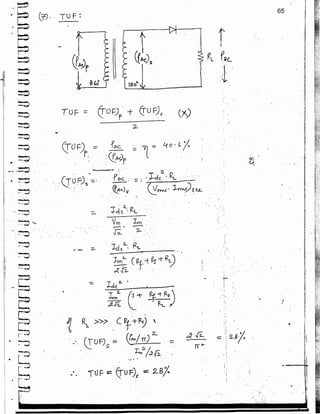 65
(7). TUF :
(PAC)p
(PAC)s
RL PDC
360° 180°
TUF = (TUF)p + (TUF)s (X)
2
(TUF)p = PDC / (PAC)p = η = 40.6 %
(TUF)s = PDC / (PAC)s = Idc². RL / (Vrms. Irms)sec
= Idc². RL / (Vm/√2 . Im/2)
= Idc². RL / (Im²/2√2 (Rf + Rt + RL))
= Idc² / (Im²/2√2 (1 + (Rf + Rt)/RL))
If RL >>> (Rf + Rt)
∴ (TUF)s = (Im/π)² / (Im²/2√2) = 2√2/π² = 28%
∴ TUF = (TUF)s = 28%